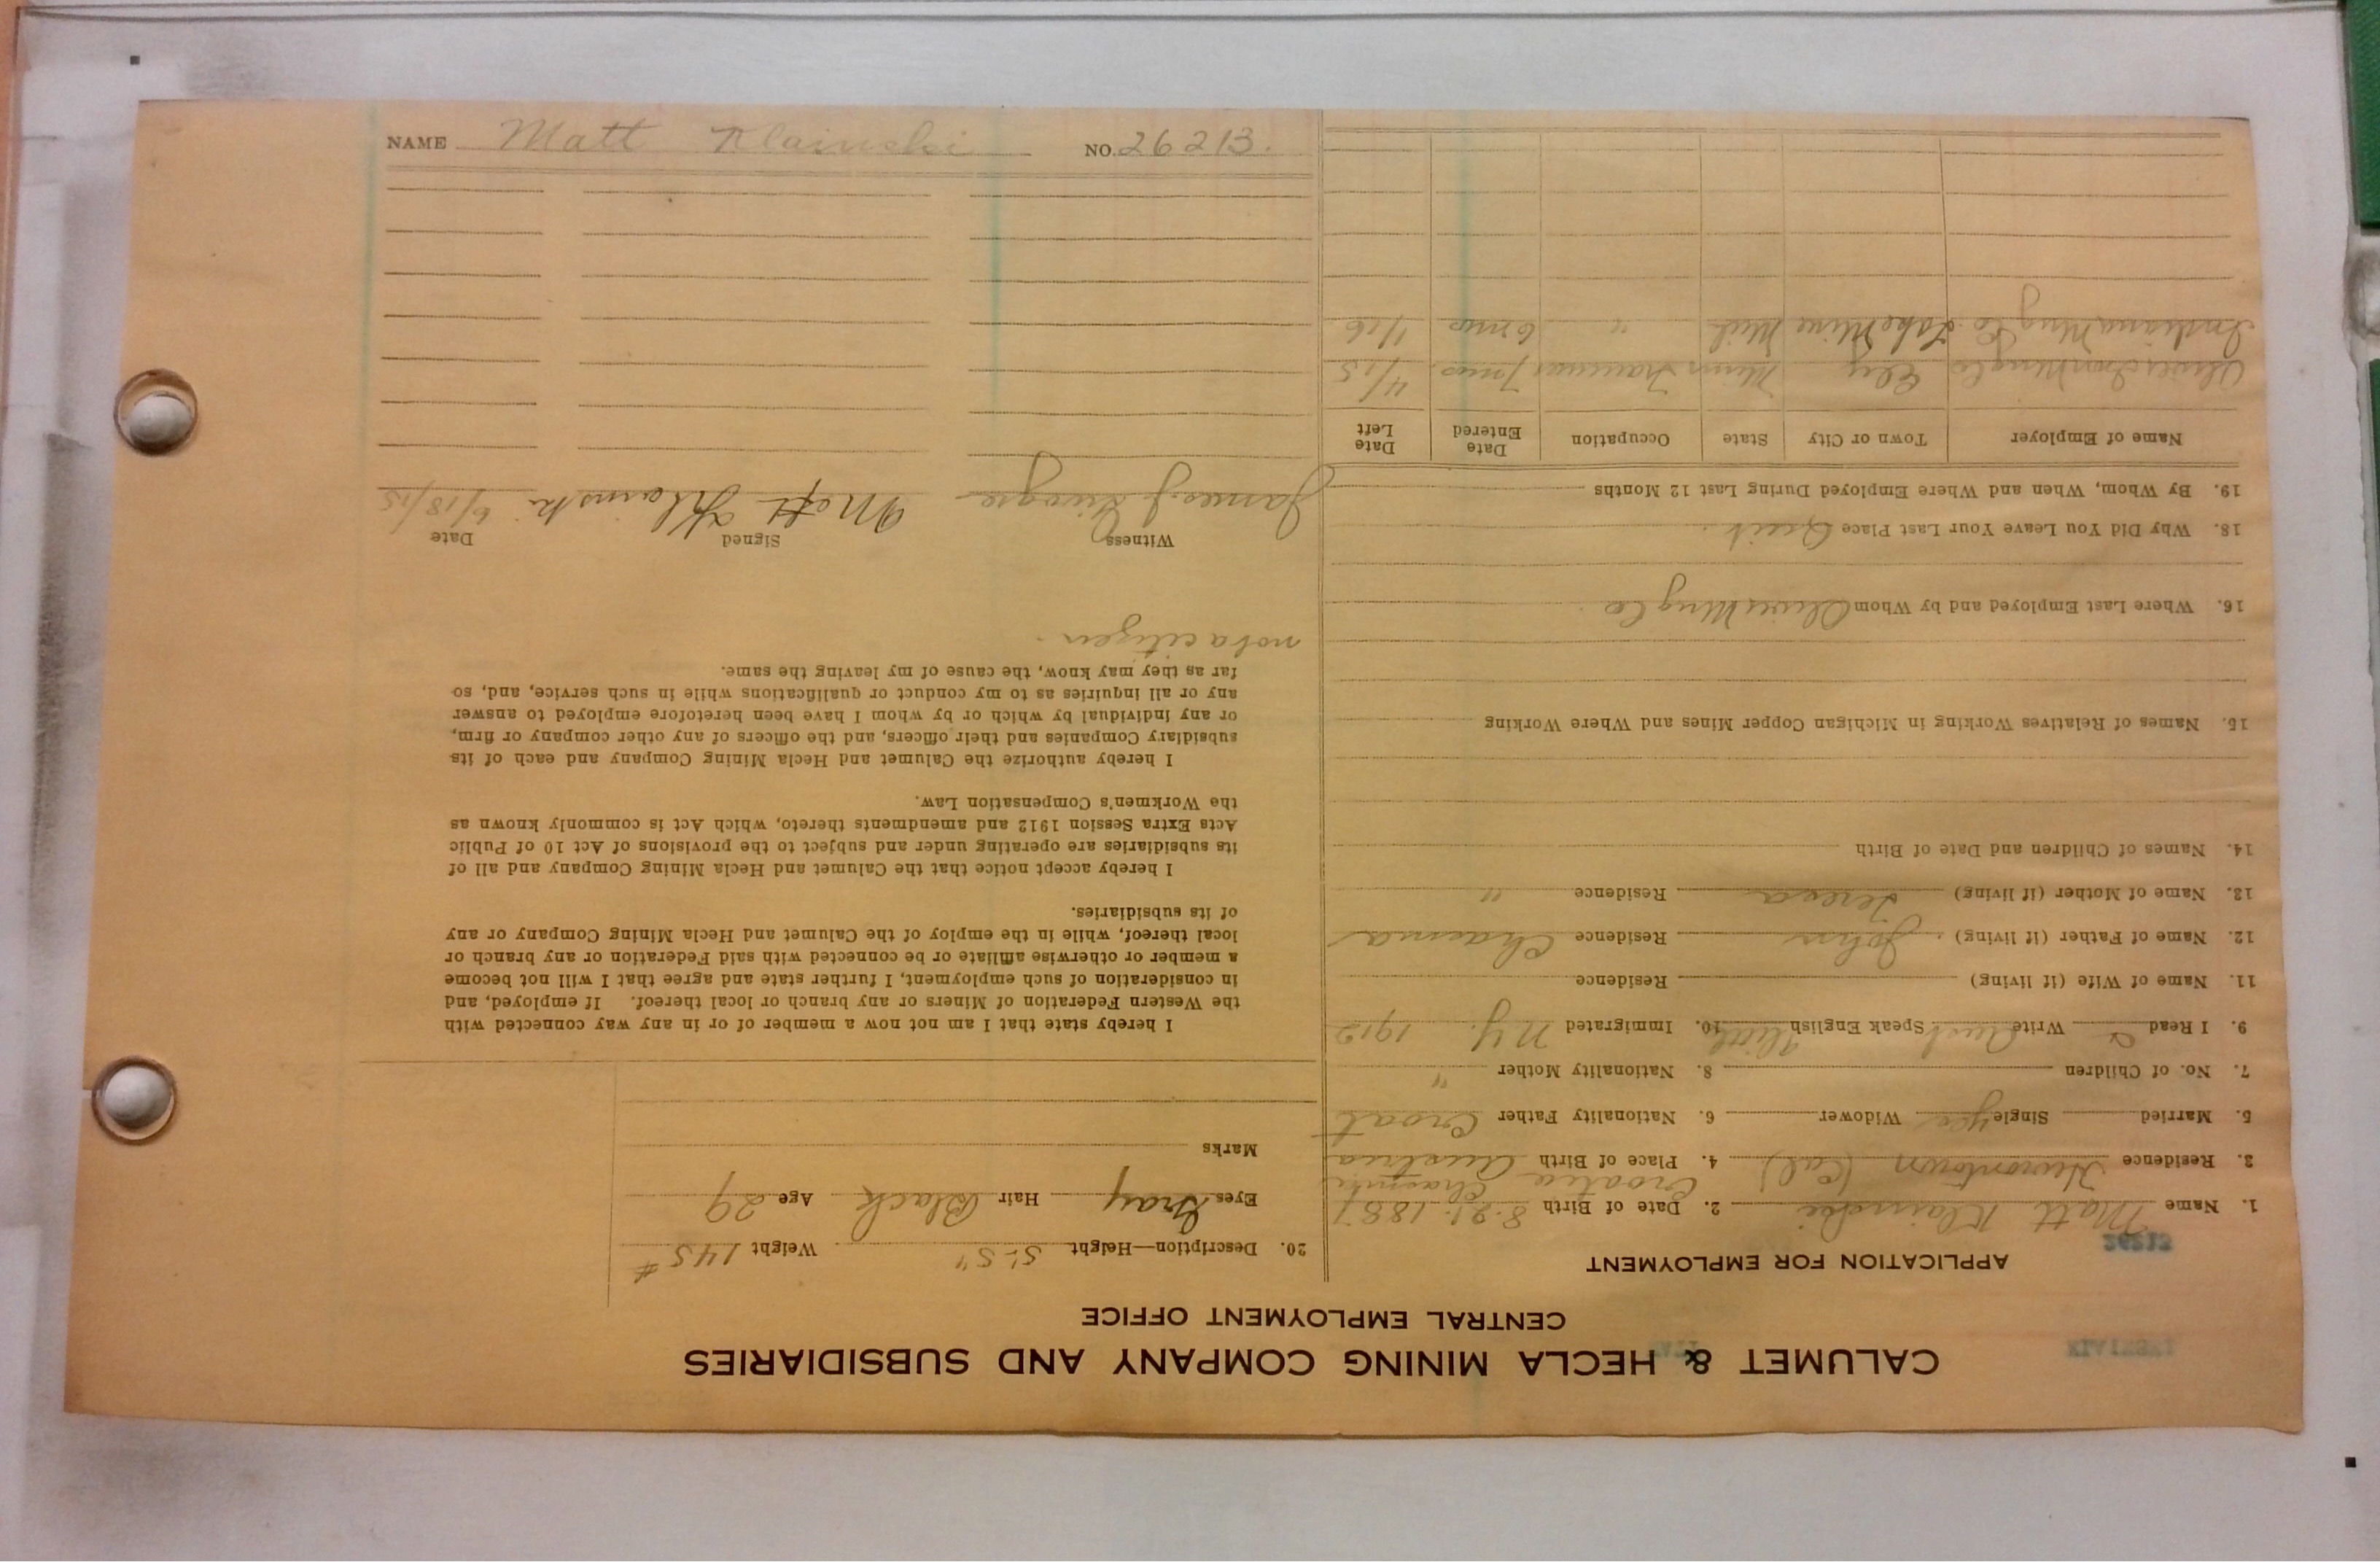 NAME Matt Klainski NO. 26213.
CALUMET & HECLA MINING COMPANY AND SUBSIDIARIES
CENTRAL EMPLOYMENT OFFICE
APPLICATION FOR EMPLOYMENT
26213
1. Name Matt Klainski 2. Date of Birth 8-21-1887
Croatia
3. Residence Hurontown (Cal) 4. Place of Birth Austria
5. Married Single yes Widower 6. Nationality Father Croat
7. No. of Children 8. Nationality Mother "
9. I Read Write Speak English 10. Immigrated N.Y. 1912
11. Name of Wife (if living) Residence
12. Name of Father (if living) John Residence
13. Name of Mother (if living) Teresa Residence "
14. Names of Children and Date of Birth
15. Names of Relatives Working in Michigan Copper Mines and Where Working
16. Where Last Employed and by Whom Oliver Mng Co
18. Why Did You Leave Your Last Place Quit.
19. By Whom, When and Where Employed During Last 12 Months
Name of Employer Town or City State Occupation Date Entered Date Left
Oliver Iron Mng Co Ely Minn Trammer 7 mos. 4/15
Indiana Mng Co. Lake Mine Mich " 6 mos 1/16
20. Description—Height 5'-5" Weight 145 #
Eyes Gray Hair Black Age 29
Marks
I hereby state that I am not now a member of or in any way connected with
the Western Federation of Miners or any branch or local thereof. If employed, and
in consideration of such employment, I further state and agree that I will not become
a member or otherwise affiliate or be connected with said Federation or any branch or
local thereof, while in the employ of the Calumet and Hecla Mining Company or any
of its subsidiaries.
I hereby accept notice that the Calumet and Hecla Mining Company and all of
its subsidiaries are operating under and subject to the provisions of Act 10 of Public
Acts Extra Session 1912 and amendments thereto, which Act is commonly known as
the Workmen's Compensation Law.
I hereby authorize the Calumet and Hecla Mining Company and each of its
subsidiary Companies and their officers, and the officers of any other company or firm,
or any individual by which or by whom I have been heretofore employed to answer
any or all inquiries as to my conduct or qualifications while in such service, and, so
far as they may know, the cause of my leaving the same.
not a citizen.
Witness Signed Date
James J. Matt Klainski 6/18/15